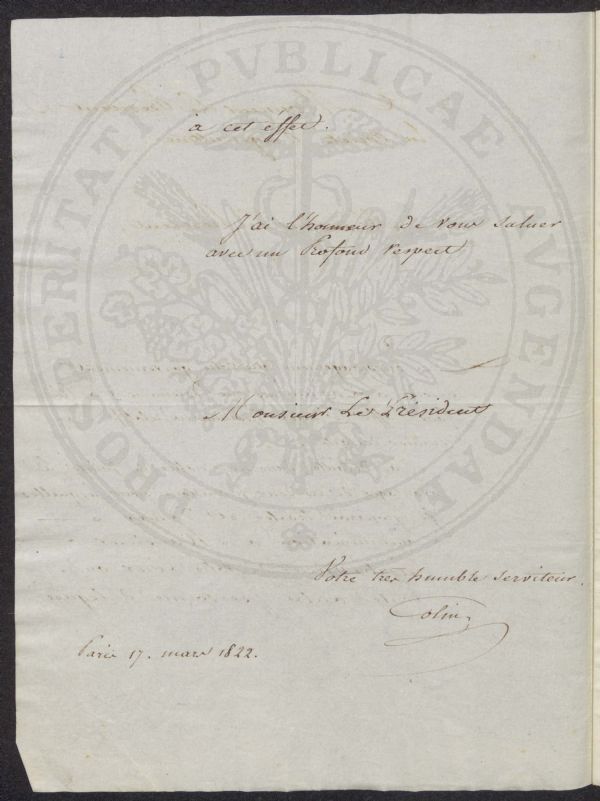 à cet effet.
J'ai l'honneur de vous saluer
avec un Profond respect
Monsieur Le Président
Votre tres humble serviteur.
Colin
Paris 17. mars 1822.
PROSPERITATI PVBLICAE AVGENDAE